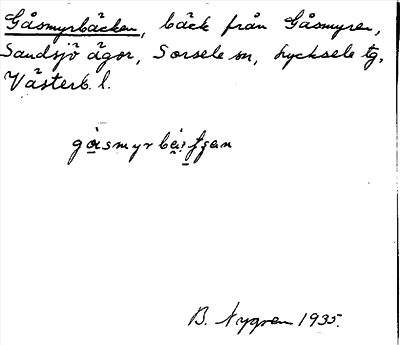 Gåsmyrbäcken, bäck från Gåsmyren,
Sandsjö ägor, Sorsele sn, Lycksele tg,
Västerb. l.
B. Nygren 1935.